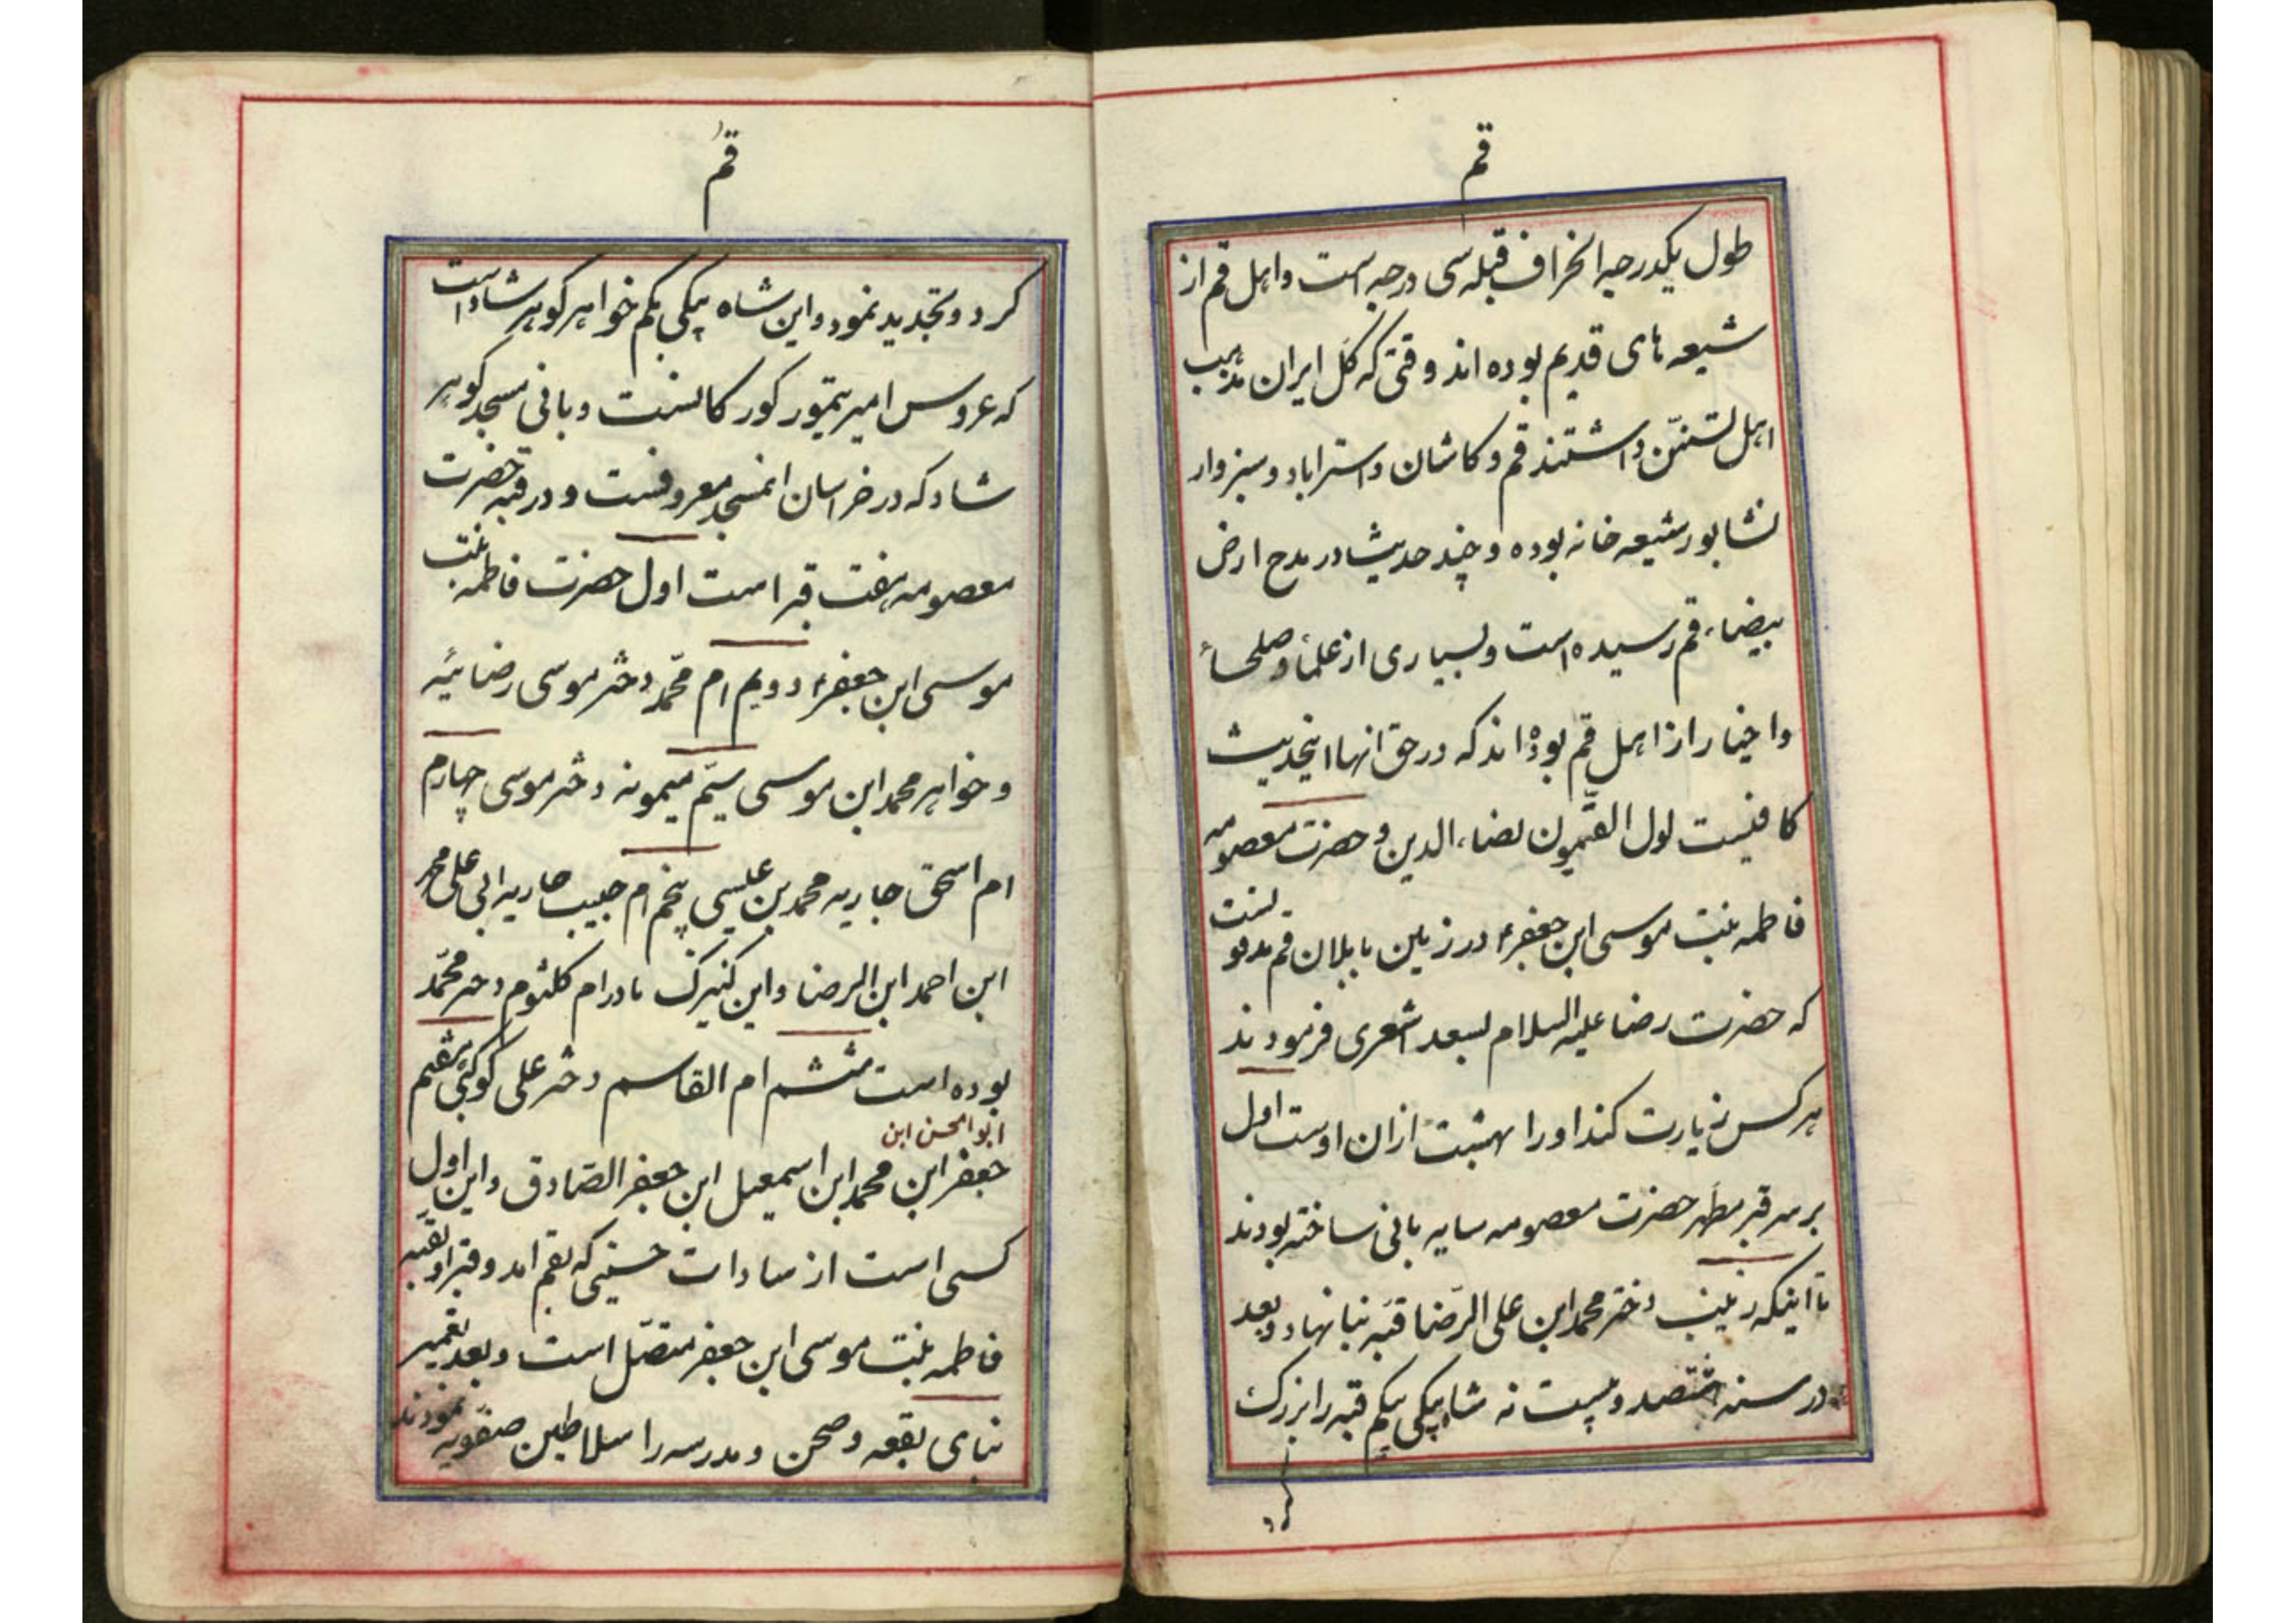 قم
طول یکدرجه انحراف قبله سی درجه است و اهل قم از
شیعه های قدیم بوده اند وقتی که کل ایران مذهب
اهل تسنّن داشتند قم و کاشان و استراباد و سبزوار
نشابور شیعه خانه بوده و چند حدیث در مدح ارض
بیضاء قم رسیده است و بسیاری از علماً و صلحاً
و اخیار از اهل قم بوده اند که در حق انها اینحدیث
کافیست لولا القمّیون لضاء الدین و حضرت معصومه
فاطمه بنت موسی ابن جعفر۴ در زمین بابلان قم مدفونست
که حضرت رضا علیه السلام لسعد اشعری فرمودند
هرکس زیارت کند او را بهشت از ان اوست اول
بر سر قبر مطهر حضرت معصومه سایه بانی ساخته بودند
تا اینکه زینب دختر محمد ابن علی الرّضا قبّه بنا نهاد و بعد
در سنه پانصد و بیست نه شاه بیکی بیکم قبه را بزرک
کرد
قم
کرد و تجدید نمود و این شاه بیکی بکم خواهر کوهر شاد است
که عروس امیر تیمور کورکانست و بانی مسجد کوهر
شاد که در خراسان انمسجد معروفست و در قبه حضرت
معصومه هفت قبر است اول حضرت فاطمه بنت
موسی ابن جعفر۴ دویم ام محمّد دختر موسی رضائیه
و خواهر محمد ابن موسی سیّم میمونه دختر موسی چهارم
ام اسحق جاریه محمد بن عیسی پنجم ام حبیب جاریه ابی علی محمد
ابن احمد ابن الرضا و این کنیزک مادر ام کلثوم دختر محمّد
بوده است ششم ام القاسم دختر علی کوکبی هفتم
ابوالحسن ابن
جعفر ابن محمد ابن اسمعیل ابن جعفر الصّادق و این اول
کسی است از سادات حسینی که بقم امد و قبر او بقبه
فاطمه بنت موسی ابن جعفر متصّل است و بعد تعمیر
بنای بقعه و صحن و مدرسه را سلاطین صفویه نمودند